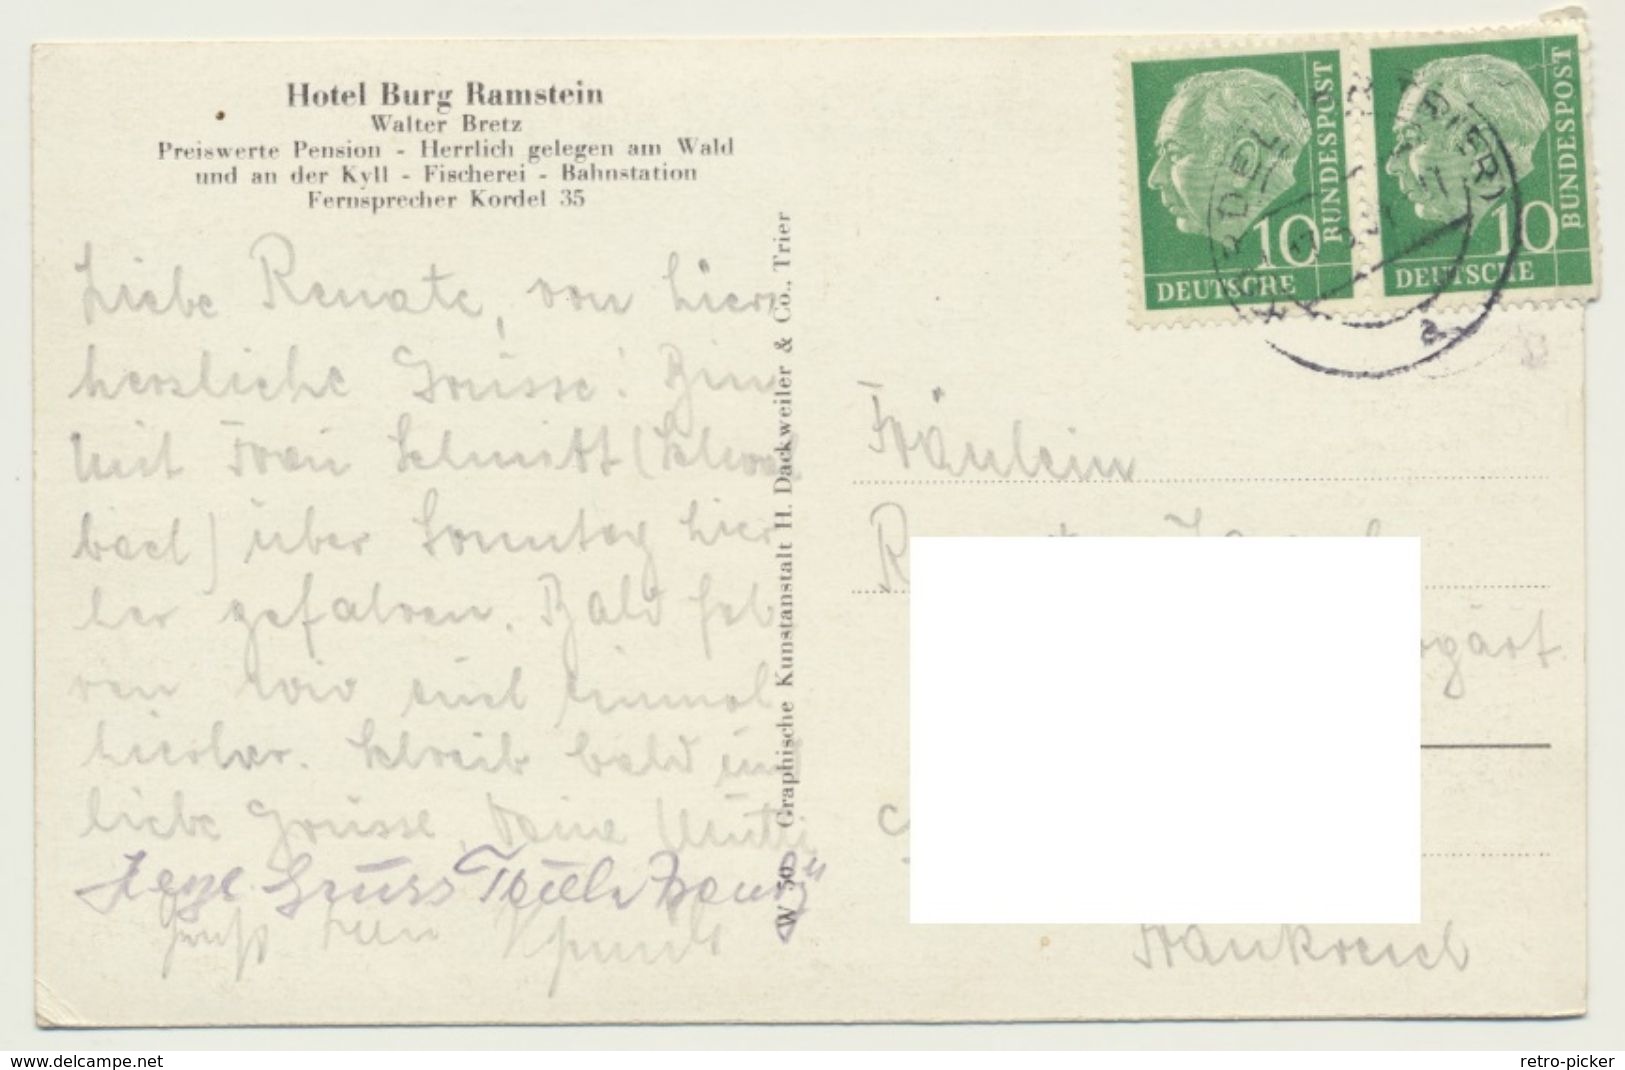 Hotel Burg Ramstein
Walter Bretz
Preiswerte Pension - Herrlich gelegen am Wald
und an der Kyll - Fischerei - Bahnstation
Fernsprecher Kordel 35
Liebe Renate, von hier
herzliche Grüsse! Bin
mit Frau Schmitt (Schwal
bach) über Sonntag hier
her gefahren. Bald fah
ren wir auch einmal
hierher. Schreib bald und
liebe Grüsse, Deine Mutti
Gruss
W 50 Graphische Kunstanstalt H. Dackweiler & Co., Trier
10
DEUTSCHE
BUNDESPOST
10
DEUTSCHE
BUNDESPOST
KORDEL (TRIER)
a
Fräulein
Frankreich
www.delcampe.net
retro-picker